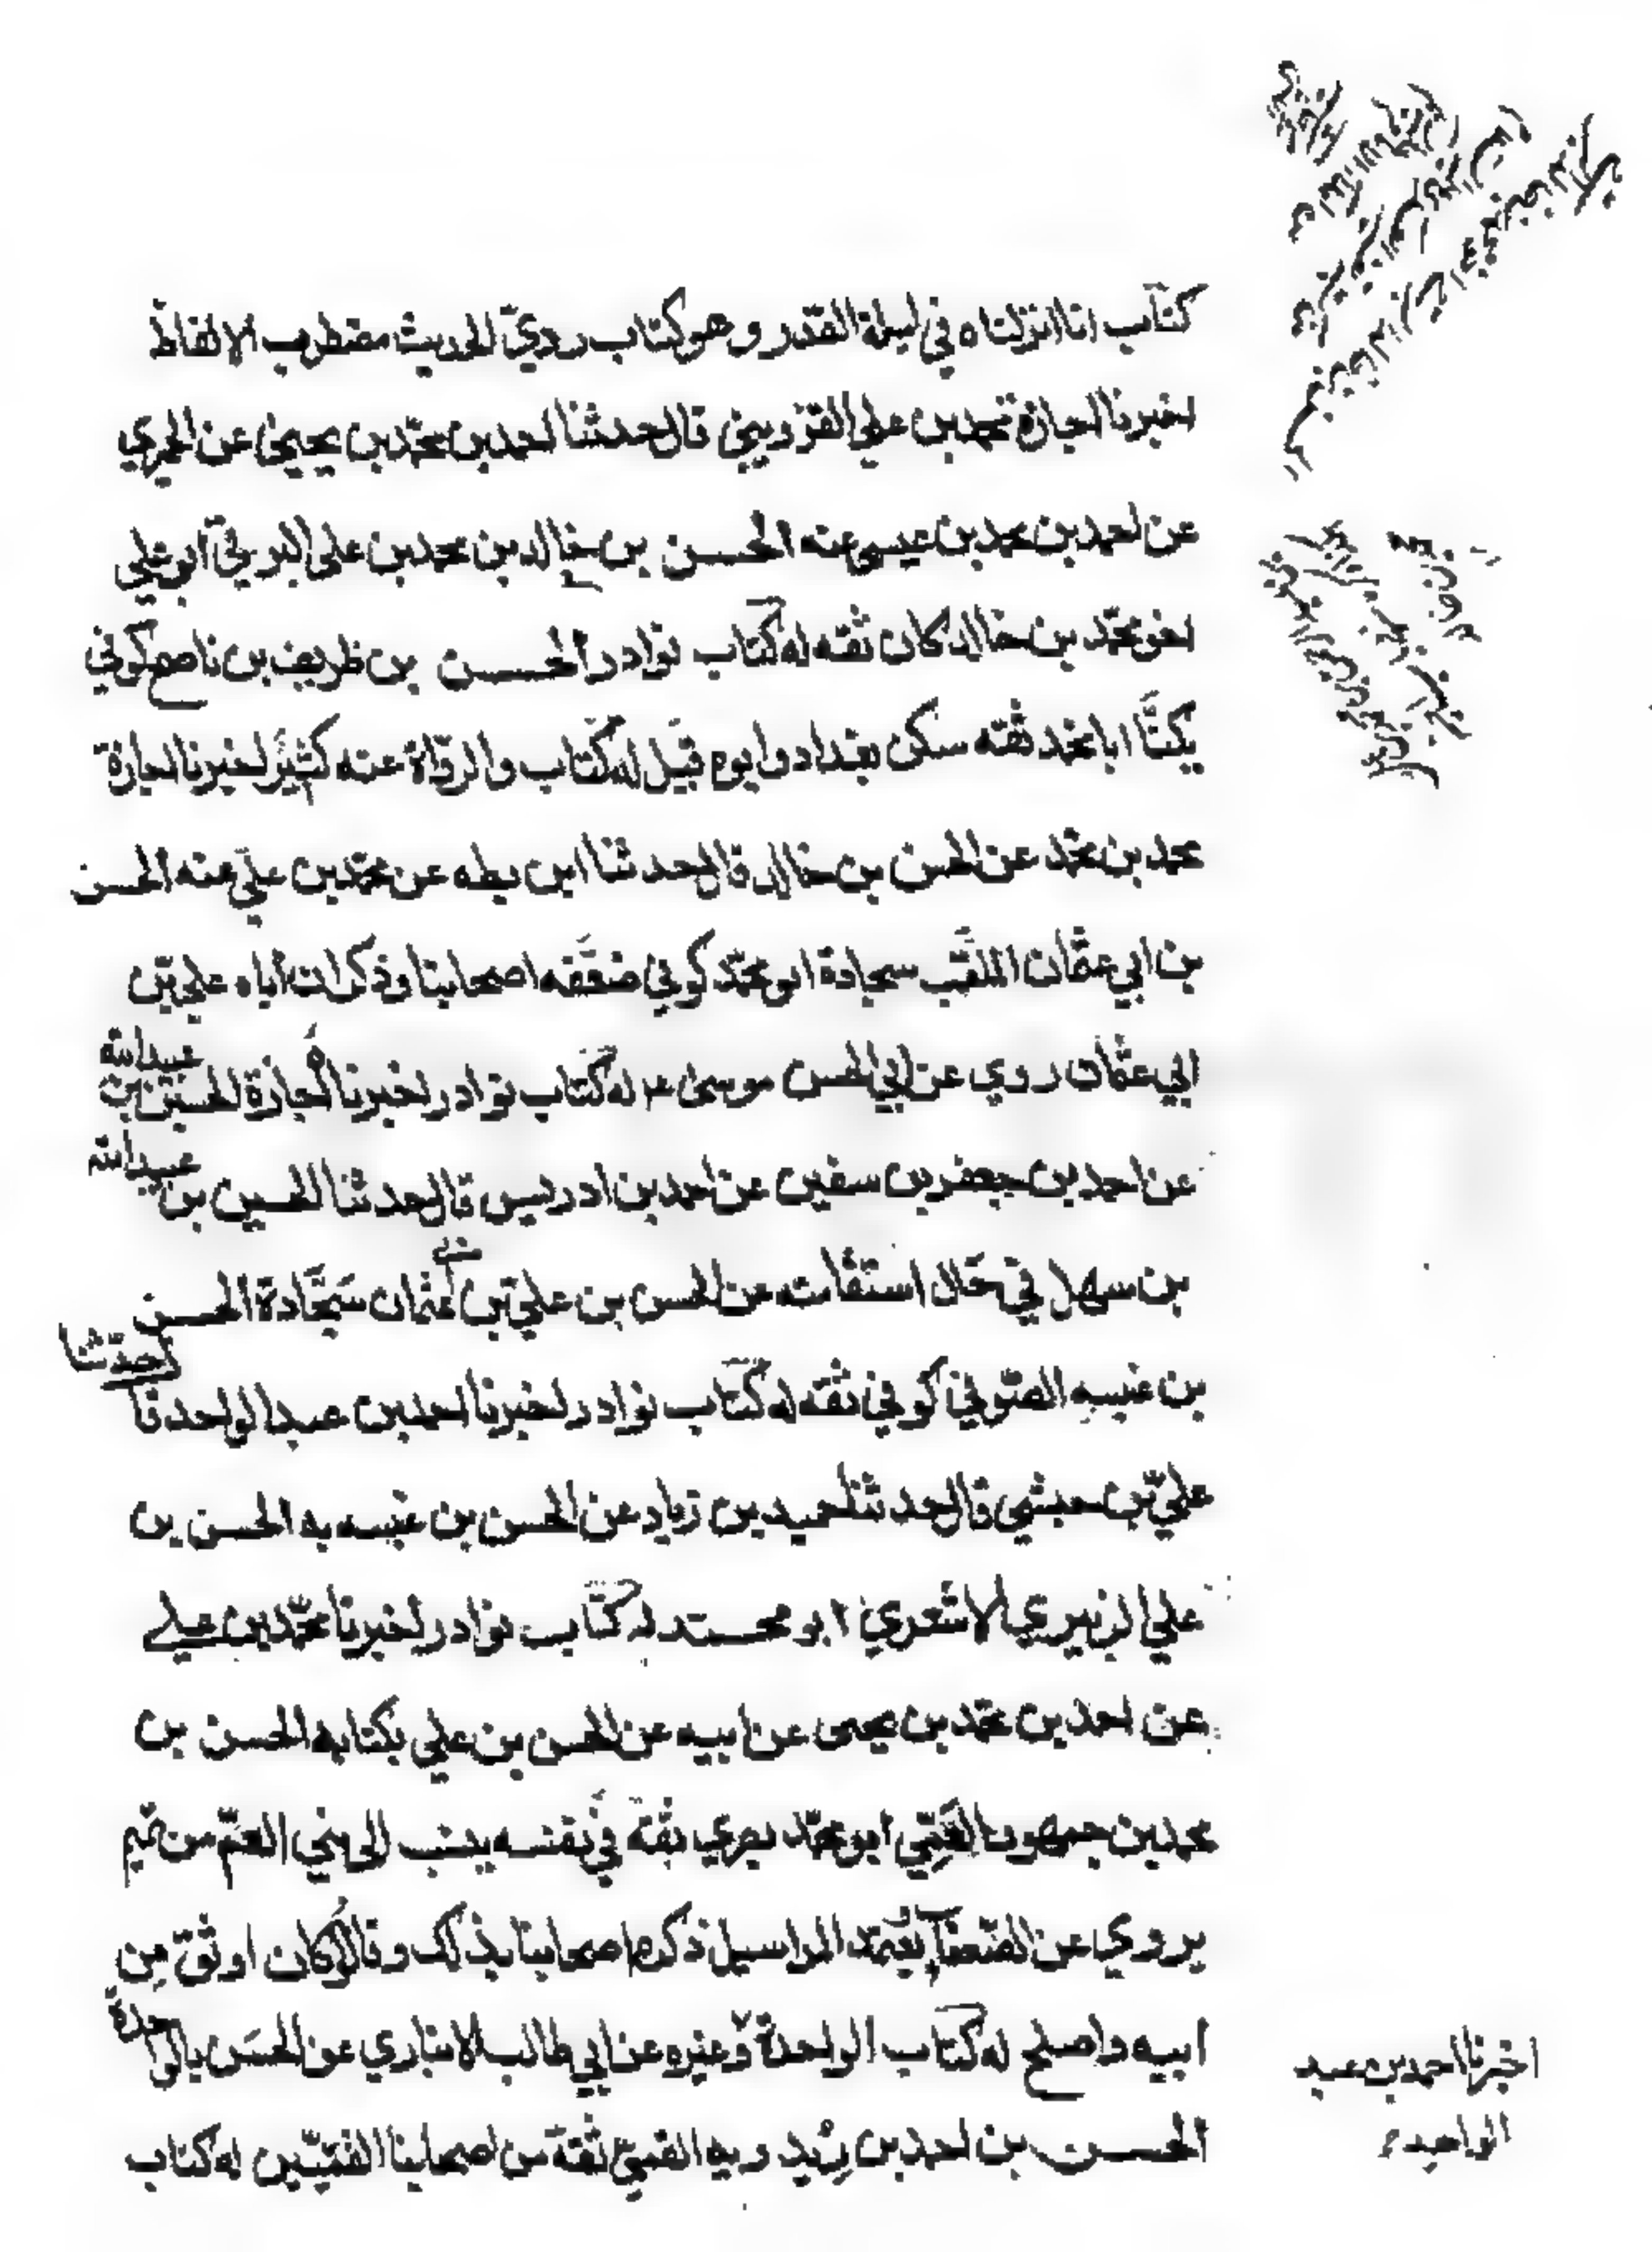 كتاب انا انزلناه في ليلة القدر وهو كتاب رديّ الحديث مضطرب الالفاظ
اخبرنا اجازة محمد بن علي القزويني قال حدثنا احمد بن محمّد بن يحيى عن الحميري
عن احمد بن محمد بن عيسى عنه الحسن بن خالد بن محمد بن على البرقي ابو علي
اخو محمّد بن خالد كان ثقه له كتاب نوادر الحسن بن ظريف بن ناصح كوفي
يكنّا ابا محمد ثقه سكن بغداد وابوه قبل له كتاب والروّاة عنه كثير اخبرنا اجازة
محمد بن محمّد عن الحسن بن خالد قال حدثنا ابن بطه عن محمّد بن عليّ عنه الحسن
بن ابي عثمان الملقّب سجادة ابو محمّد كوفي ضعّفه اصحابنا وذكر ان أباه علي بن
ابي عثمان روي عن ابي الحسن موسى له كتاب نوادر اخبرنا اجازة الحسين بن عبيدالله
عن احمد بن جعفر بن سفين عن احمد بن ادريس قال حدثنا الحسين بن عبيدالله
بن سهل في حال استقامته عن الحسن بن علي بن عثمان سجّادة الحسن
بن عنبسه الصّوفي كوفي ثقه له كتاب نوادر اخبرنا احمد بن عبد الواحد قا حدّثنا
عليّ بن حبشي قال حدثنا حميد بن زياد عن الحسن بن عنبسه به الحسن بن
علي الزبيري الاشعري ابو محمد له كتاب نوادر اخبرنا محمّد بن علي
عن احمد بن محمّد بن يحيى عن ابيه عن الحسن بن علي بكتابه الحسن بن
محمد بن جمهور العَمِّي ابو محمّد بصري ثقة في نفسه ينسب الى بني العمّ من تميم
يروي عن الضّعفآء ويعتمد المراسيل ذكره اصحابنا بذلك وقالوا كان اوثق مِن
ابيه واصلح له كتاب الواحدة وغيره عن ابي طالب الانباري عن الحسَن بالواحدة
الحسن بن احمد بن ريذويه القميّ ثقة من اصحابنا القميّين له كتاب
اخبرنا احمد بن عبد
الواحد